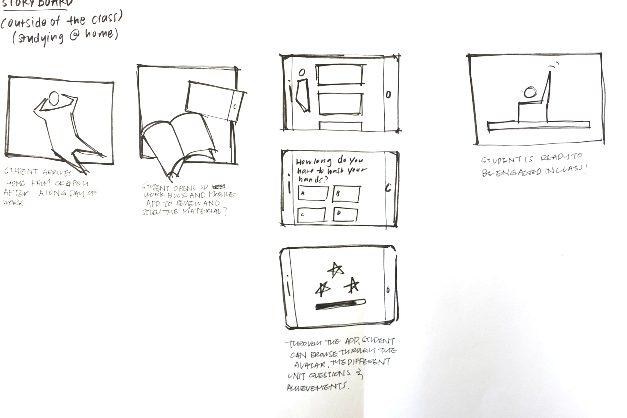 STORYBOARD
(outside of the class)
(studying @ home)
STUDENT ARRIVES
HOME FROM
AFTER A LONG DAY OF
WORK
STUDENT OPENS UP
WORK BOOK AND MOBILE
APP TO REVIEW AND
STUDY THE MATERIAL?
How long do you
have to wash your
hands?
A B
C D
THROUGH THE APP, STUDENT
CAN BROWSE THROUGH THE
AVATAR, THE DIFFERENT
UNIT QUESTIONS &
ACHIEVEMENTS.
STUDENT IS READY TO
BE ENGAGED IN CLASS!